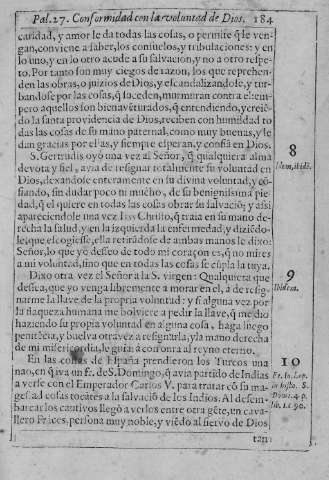 Pal.27. Conformidad con la voluntad de Dios. 184
caridad, y amor le da todas las cosas, o permite q̃ le ven-
gan, conviene a saber, los consuelos, y tribulaciones: y en
lo uno, y en lo otro acude a su salvacion, y no a otro respe-
to. Por tanto son muy ciegos de razon, los que reprehen-
den las obras, o juizios de Dios, y escandalizandose, y tur-
bandose por las cosas, q̃ suceden, murmuran contra el: em-
pero aquellos son bienavẽturados, q̃ entendiendo, y creiẽ-
do la santa providencia de Dios, reciben con humildad to
das las cosas de su mano paternal, como muy buenas, y le
dan gracias por ellas, y siempre esperan, y confiã en Dios.
S. Gertrudis oyò una vez al Señor, q̃ qualquiera alma
devota y fiel, avia de resignar totalmente su voluntad en
Dios, dexandose enteramente en su divina voluntad, y cõ-
fiando, sin dudar poco ni mucho, de su benignissima pie-
dad, q̃ el quiere en todas las cosas obrar su salvaciõ; y assi
apareciendole una vez Iesu Christo, q̃ traia en su mano de-
recha la salud, y en la izquierda la enfermedad, y diziẽdo-
le, que escogiesse, ella retirãdose de ambas manos le dixo:
Señor, lo que yo desseo de todo mi coraçon es, q̃ no mires
a mi voluntad, sino que en todas las cosas se cũpla la tuya.
Dixo otra vez el Señor a la S. virgen: Qualquiera que
dessea, que yo venga libremente a morar en el, à de resig-
narme la llave de la propria voluntad: y si alguna vez por
la flaqueza humana me bolviere a pedir la llave, q̃ me dio
haziendo su propria voluntad en alguna cosa, haga luego
penitẽcia, y buelva otra vez a resignarla, y la mano derecha
de mi misericordia, le guiarà cõ honra al reyno eterno.
En las costas de España prendieron los Turcos una
nao, en q̃ iva un Fr. de S. Domingo, q̃ avia partido de Indias
a verse con el Emperador Carlos V. para tratar cõ su ma-
gestad cosas tocãtes a la salvaciõ de los Indios. Al desem-
barcar los cautivos llegò a verlos entre otra gẽte, un cava-
llero Frances, persona muy noble, y viẽdo al siervo de Dios
tan
8
Idem, ibidẽ.
9
Ibidem.
10
Fr. Io. Lop.
in histo. S.
Domi. 4. p.
lib. 1. c. 90.